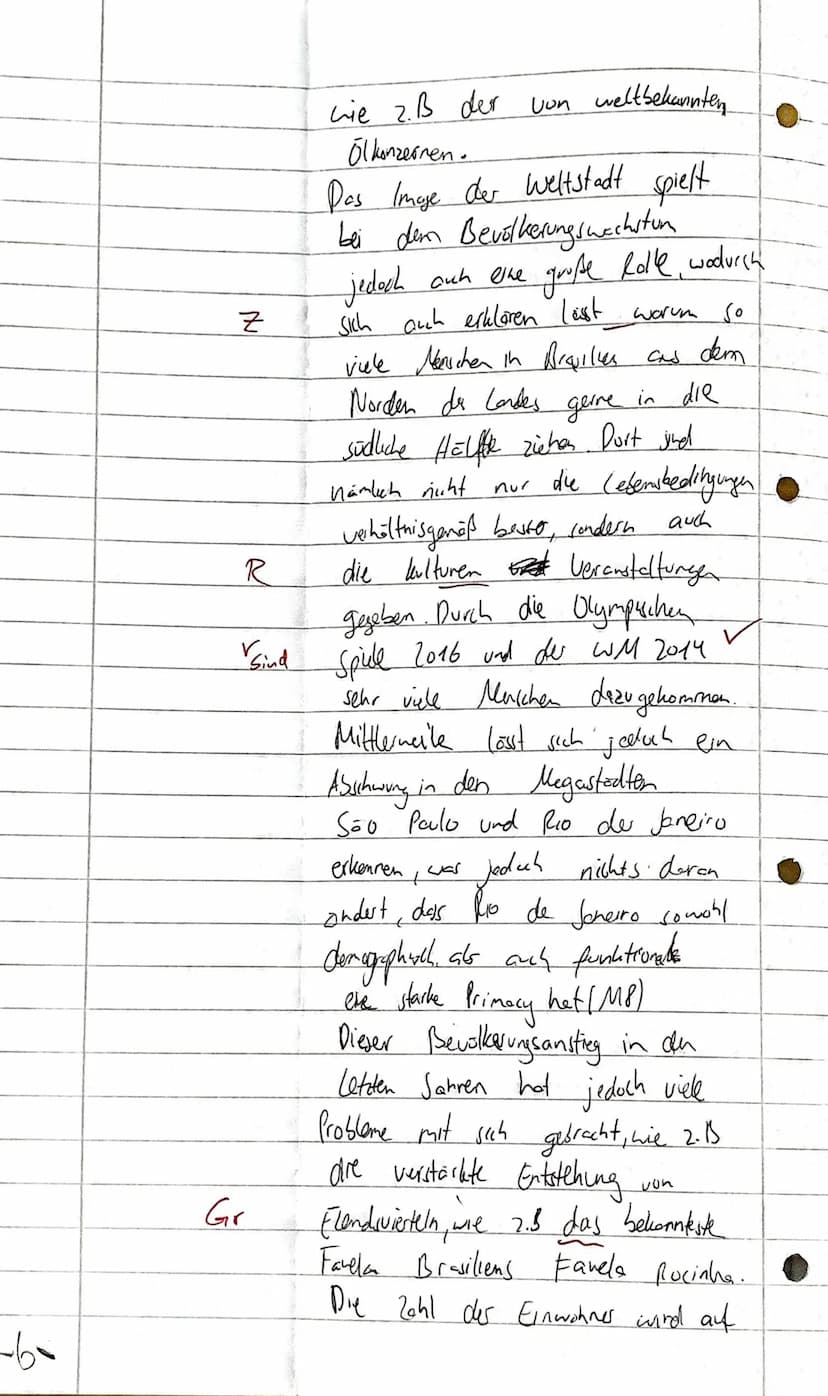 wie z.B der von weltbekannten
Ölkonzernen.
Das Image der Weltstadt spielt
bei dem Bevölkerungswachstum
jedoch auch eine große Rolle, wodurch
Z sich auch erklären lässt warum so
viele Menschen in Brasilien aus dem
Norden des Landes gerne in die
südliche Hälfte ziehen. Dort sind
nämlich nicht nur die Lebensbedingungen
verhältnisgemäß besser, sondern auch
R die kulturen Veranstaltungen
gegeben. Durch die Olympischen
√sind Spiele 2016 und der WM 2014 ✓
sehr viele Menschen dazugekommen.
Mittlerweile lässt sich jedoch ein
Abschwung in den Megastädten
São Paulo und Rio de Janeiro
erkennen, was jedoch nichts daran
ändert, dass Rio de Janeiro sowohl
demographisch, als auch funktionale
eine starke Primacy hat (M8)
Dieser Bevölkerungsanstieg in den
letzten Jahren hat jedoch viele
Probleme mit sich gebracht, wie z.B
die verstärkte Entstehung von
Gr Elendsvierteln, wie z.B das bekannteste
Favela Brasiliens Favela Rocinha.
Die Zahl der Einwohner wird auf
-6-